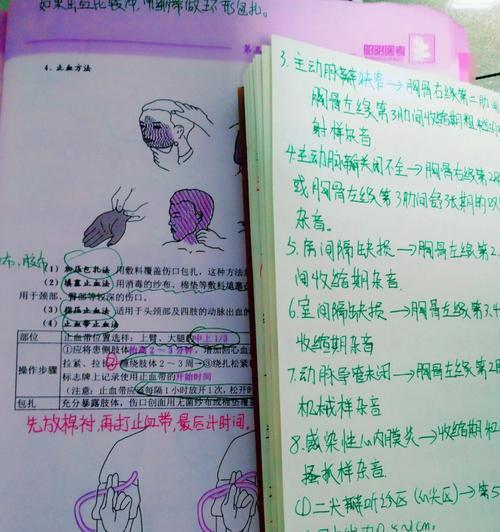 如果出血比较
做环形包扎。
昭昭医考
4. 止血方法
(1) 加压包扎法 用敷料覆盖伤口包扎，这种方法
(2) 填塞止血法 用消毒的纱布、棉垫等敷料填塞
用于颈部、臀部等较深的伤口。
(3) 指压止血法 适用于头颈部及四肢的动脉出血
(4) 止血带止血法
部位 止血带位置选择：上臂、大腿 中上1/3
操作步骤
①应将患侧肢体抬高2～3分钟，增加回心血
拉紧、拉长 缠绕肢体2～3周→③绕扎松紧
标志牌上记录使用止血带的开始时间
（注意：止血带应每隔1小时放开1次，松开时
包扎 充分暴露肢体，伤口创面用无菌纱布或棉垫覆
先放棉衬，再打止血带，最后计时间。
3. 主动脉瓣狭窄→胸骨右缘第二肋
胸骨左缘第3肋间收缩期粗糙
射样杂音
4. 主动脉瓣关闭不全→胸骨右缘第2
或胸骨左缘第3肋间舒张期
杂音。
5. 房间隔缺损→胸骨左缘第2
间收缩期杂音
6. 室间隔缺损→胸骨左缘第3.4
收缩期杂音
7. 动脉导管未闭→胸骨左缘第2
机械样杂音
8. 感染性心内膜炎→收缩期
搔抓样杂音.
① 二尖瓣听诊区(心尖区)→第5